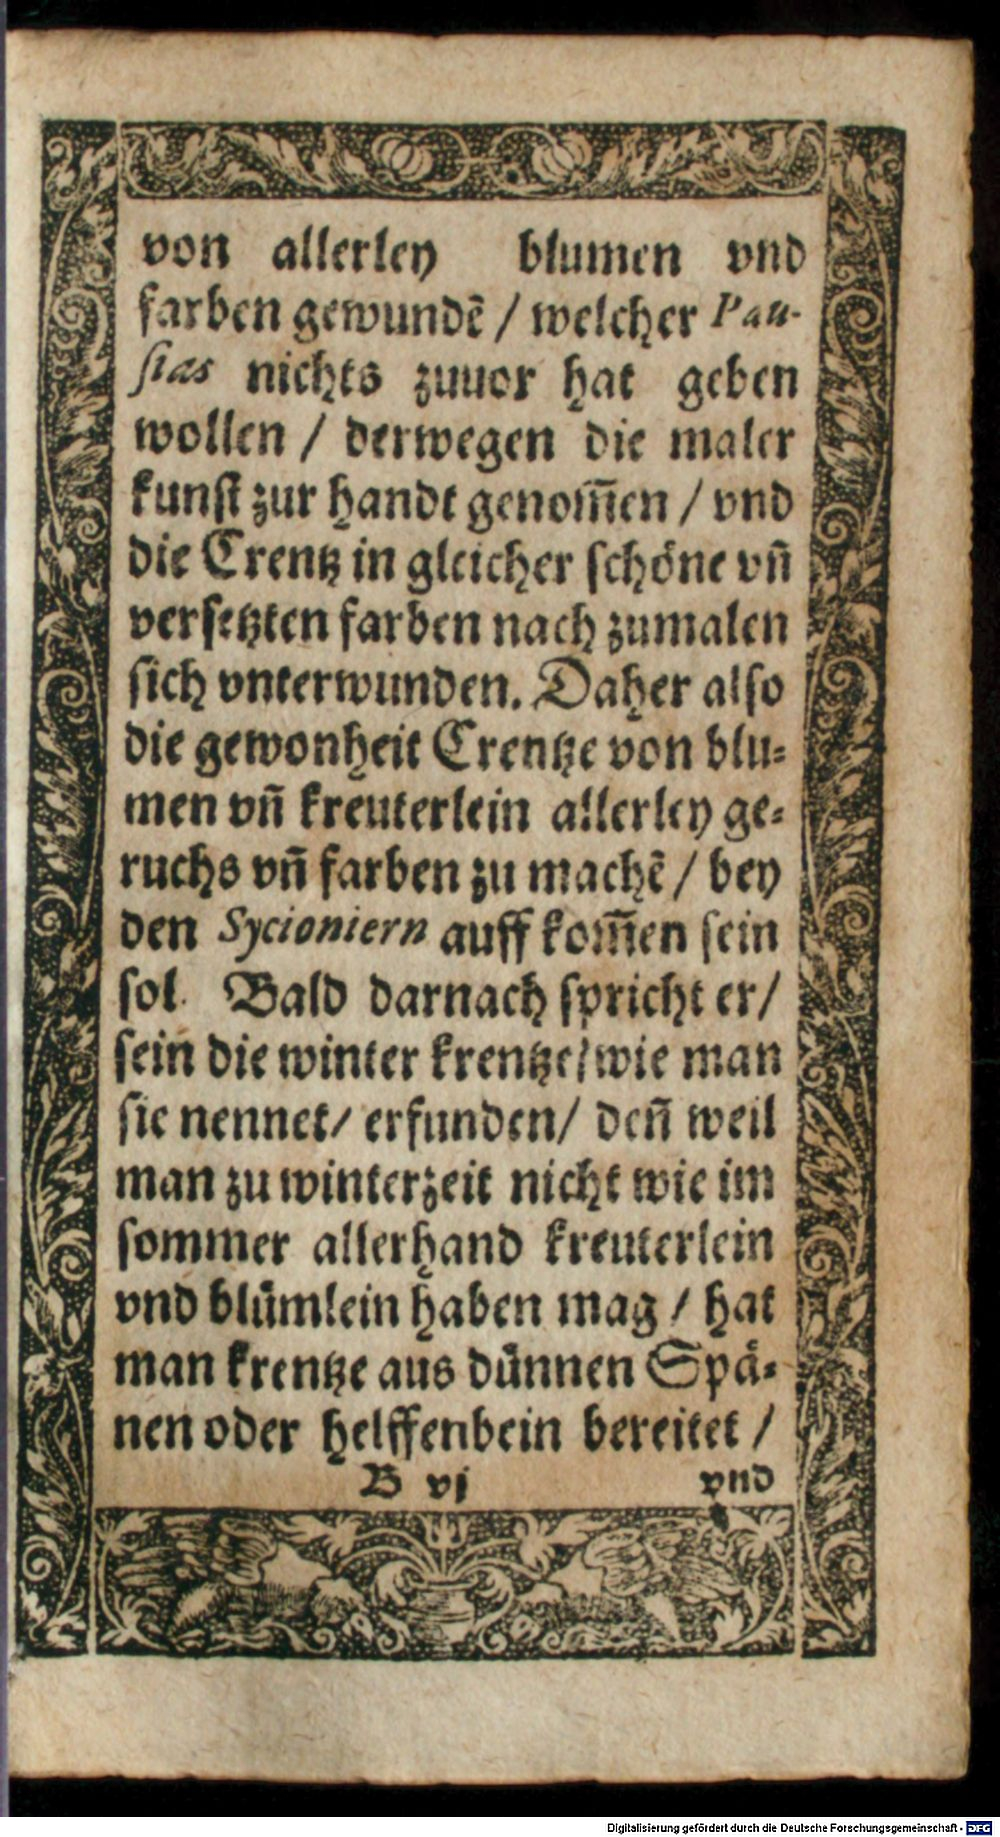 von allerley blumen vnd
farben gewundẽ / welcher Pau-
sias nichts zuuor hat geben
wollen / derwegen die maler
kunst zur handt genom̃en / vnd
die Crentz in gleicher schöne vñ
versetzten farben nach zumalen
sich vnterwunden. Daher also
die gewonheit Crentze von blu-
men vñ kreuterlein allerley ge-
ruchs vñ farben zu machẽ / bey
den Sycioniern auff kom̃en sein
sol. Bald darnach spricht er /
sein die winter krentze / wie man
sie nennet / erfunden / deñ weil
man zu winterzeit nicht wie im
sommer allerhand kreuterlein
vnd blümlein haben mag / hat
man krentze aus dünnen Spä-
nen oder helffenbein bereitet /
B vj vnd
Digitalisierung gefördert durch die Deutsche Forschungsgemeinschaft - DFG